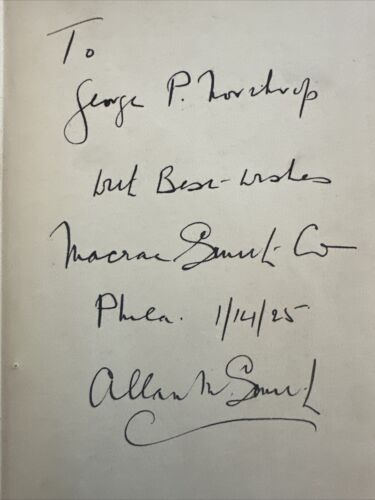 To
George P. Northrop
with Best wishes
Macrae Smith Co
Phila. 1/14/25
Allan M. Smith